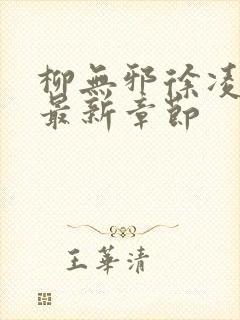 柳無邪徐凌
最新章節
王華清